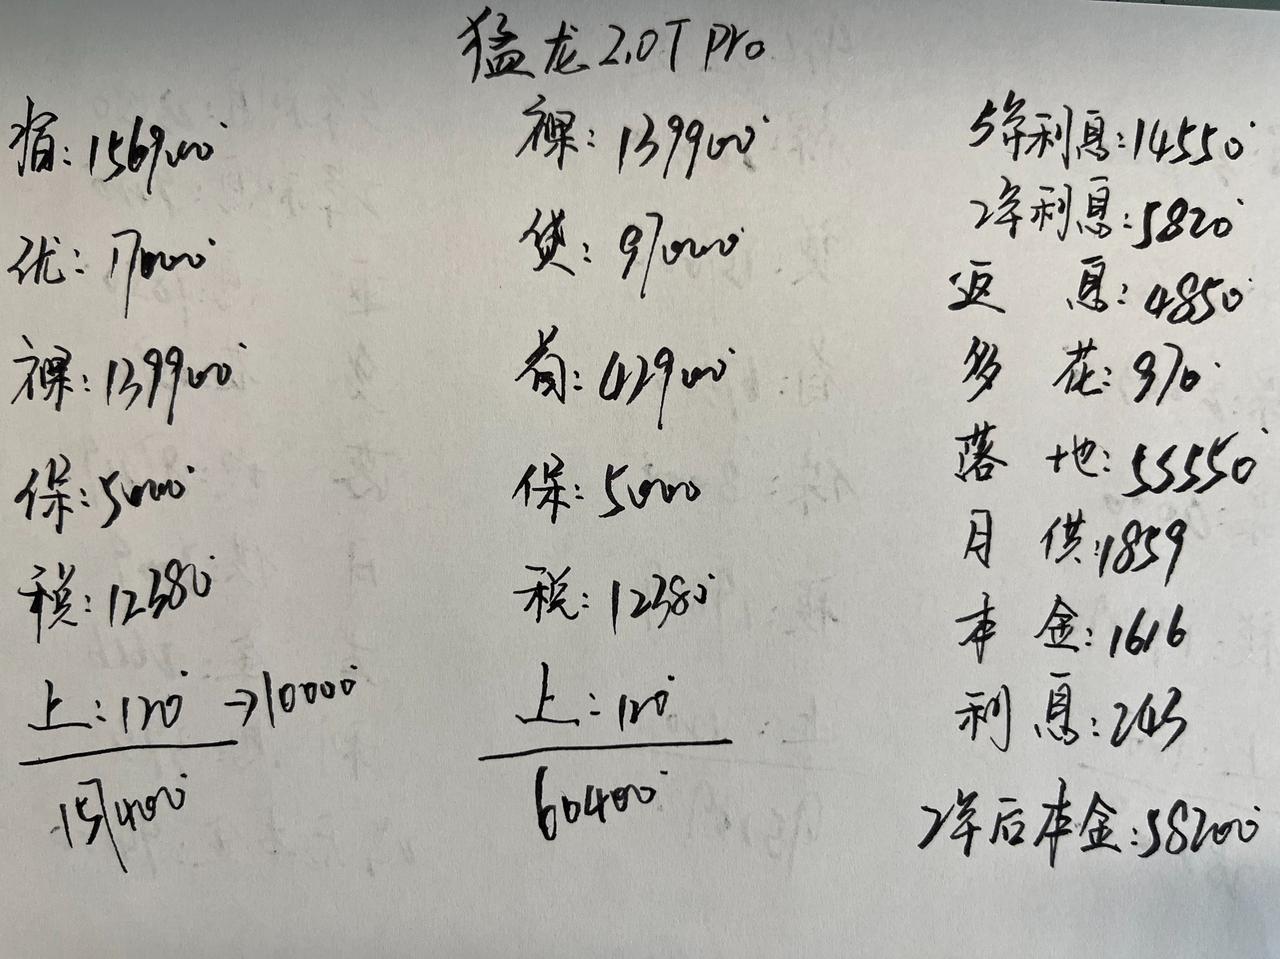 猛龙2.0T Pro
指:156900
优:17000
裸:139900
保:5000
税:12380
上:120 →10000
157400
裸:139900
贷:97000
首:42900
保:5000
税:12380
上:120
60400
5年利息:14550
2年利息:5820
返息:4850
多花:970
落地:55550
月供:1859
本金:1616
利息:243
2年后本金:58200